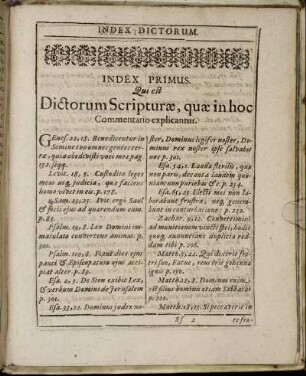 INDEX DICTORUM.
INDEX PRIMUS.
Qui est
Dictorum Scripturæ, quæ in hoc
Commentario explicantur.
GEnes. 22, 18. Benedicentur in
Semine tuo omnes gentes ter-
ræ, quia obedivisti voci meæ pag.
152. sqq.
Levit. 18, 5. Custodite leges
meas atq; judicia, quæ faciens
homo vivet in eis. p. 178.
Saul
& socii ejus ad quærendum eum.
p. 83.
Psalm. 19, 8. Lex Domini im-
maculata convertens animas. p.
300.
Psalm. 109, 8. Fiant dies ejus
pauci & Episcopatum ejus acci-
piat alter. p. 83.
Esa. 2, 3. De Sion exibit Lex,
& verbum Domini de Jerusalem
p. 301.
Esa. 33, 22. Dominus judex no-
ster, Dominus legifer noster, Do-
minus rex noster ipse salvabit
nos p. 301.
Esa. 54, 1. Lauda sterilis, quæ
non paris, decanta laudem quo-
niam non parturis &c p. 254.
Esa. 65, 23. Electi mei non la-
borabunt frustra, neq; genera-
bunt in conturbatione p. 230.
Zachar. 9, 12. Convertimini
ad munitionem vincti spei, hodie
quoq; annuncians duplicia red-
dam tibi p. 206.
Matth. 5, 22. Qui dixerit fra-
tri suo, Fatue, reus erit gehennæ
ignis p. 130.
Matth. 12, 8. Dominus enim
est filius hominis etiam Sabbathi
p. 300.
Matth. 18, 15. Si peccaverit in
Xf 2